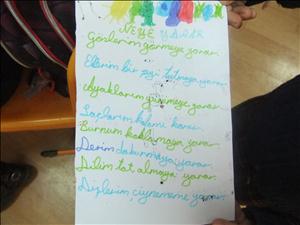 NEYE YARAR
Gözlerim görmeye yarar.
Ellerim bir şeyi tutmaya yarar.
Ayaklarım yürümeye yarar.
Saçlarım
Burnum koklamaya yarar.
Derim dokunmaya yarar.
Dilim tat almaya yarar.
Dişlerim çiğnememe yarar.